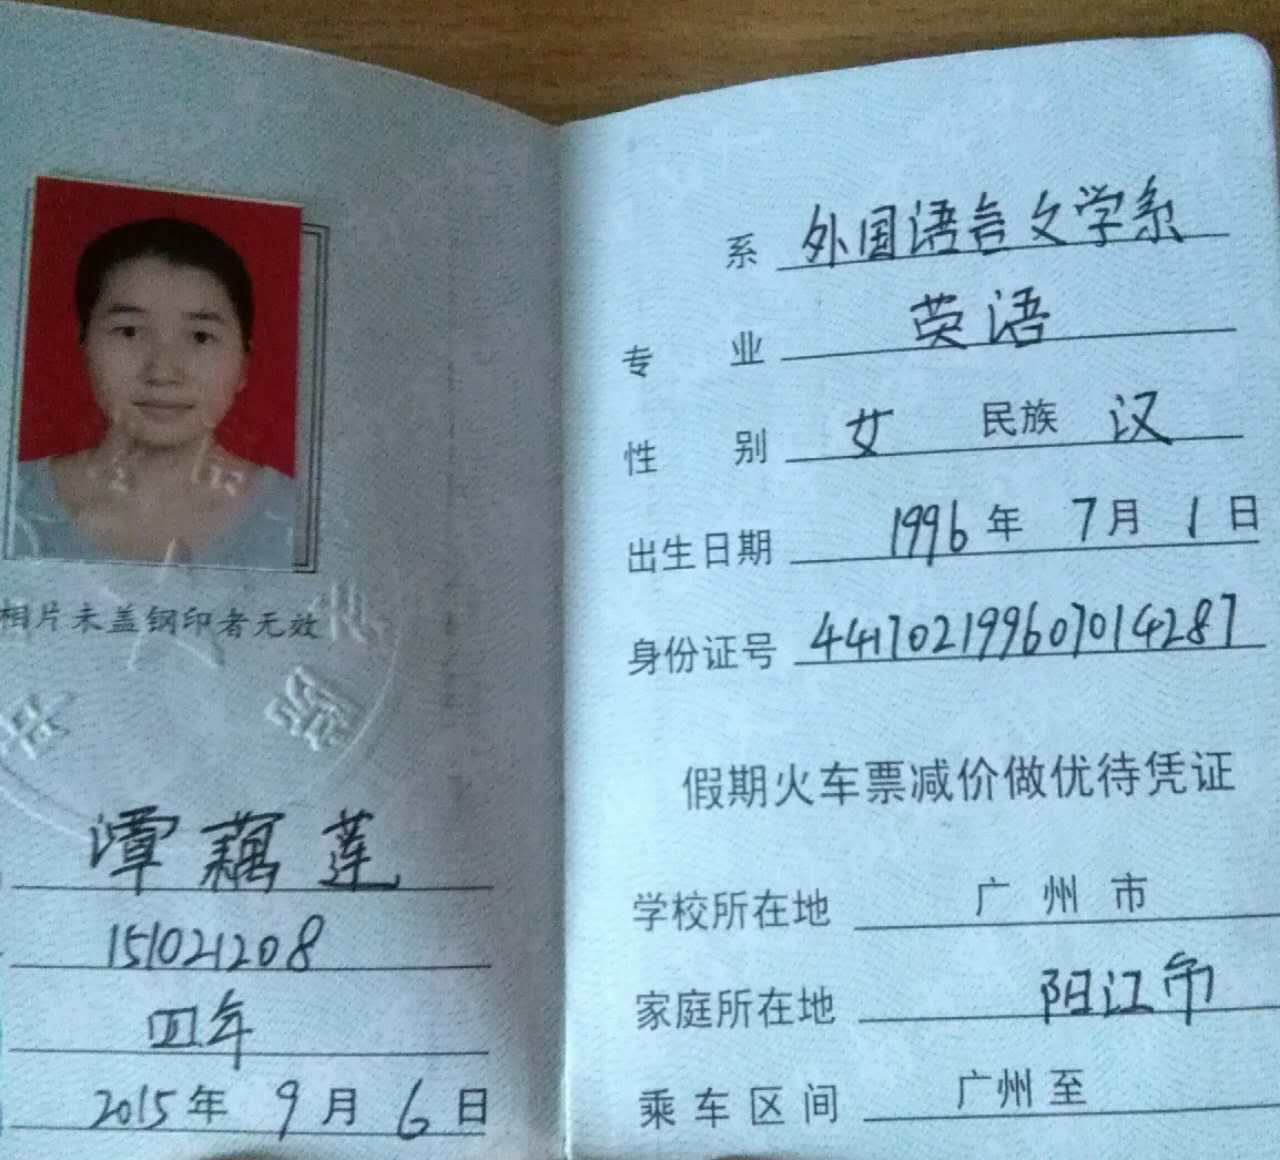 相片未盖钢印者无效
谭藕莲
151021208
四年
2015年 9月 6日
系 外国语言文学系
专 业 英语
性 别 女 民族 汉
出生日期 1996年 7月 1日
身份证号 441702199607014287
假期火车票减价做优待凭证
学校所在地 广州市
家庭所在地 阳江市
乘车区间 广州至